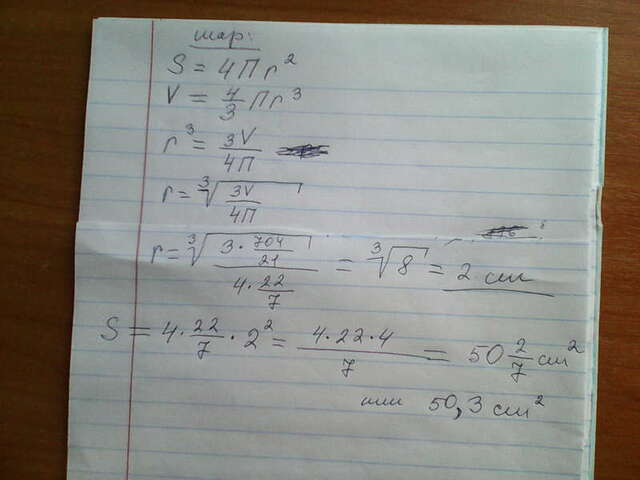 шар:
S = 4Пr²
V = 4/3 Пr³
r³ = 3V/4П
r = ∛(3V/4П)
r = ∛((3·704/21)/(4·22/7)) = ∛8 = 2 см
S = 4·22/7·2² = (4·22·4)/7 = 50 2/7 см²
или 50,3 см²